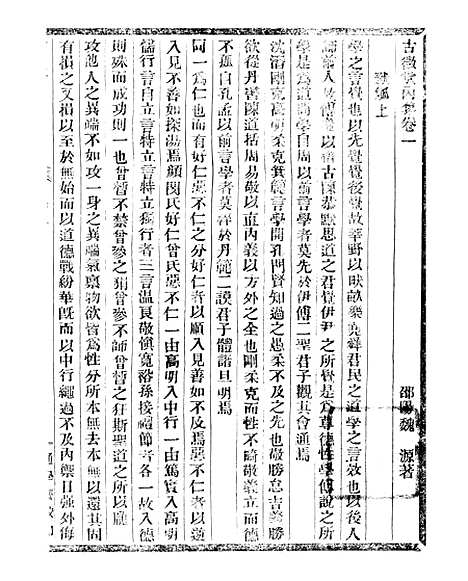 古微堂內集卷一
默觚上
邵陽魏 源著
學之言覺也以先覺覺後覺故莘野以畎畝樂堯舜君民之道學之言效也以後
人師前人 以稽古陳恭默思道之君覺伊尹之所覺是爲尊德性學傅說之所
學是爲道問學自周以前言學者莫先於伊傅二聖君子觀其會通焉
沈潛剛克高明柔克箕疇言學開孔門賢知過之愚柔不及之先也敬勝怠吉義勝
欲從丹書陳道括周易敬以直內義以方外之全也剛克柔克而性不畸敬義立而德
不孤自孔孟以前言學者莫粹於丹範二謨君子體諸旦明焉
同一爲仁也而有好仁惡不仁之分好仁者以願入見善如不及焉惡不仁者以逆
入見不善如探湯焉顏閔氏好仁曾氏惡不仁一由高明入中行一由篤實入高明
儒行言自立言特立言特立獨行者三言溫良敬慎寬裕孫接禮節者各一故入德
則殊而成功則一也曾皙不禁曾參之狷曾參不師曾皙之狂斯聖道之所以廓
攻他人之異端不如攻一身之異端氣稟物欲皆爲性分所本無去本無以還其固
有損之又損以至於無始而以道德戰紛華旣而以中行繩過不及內禦日強外侮